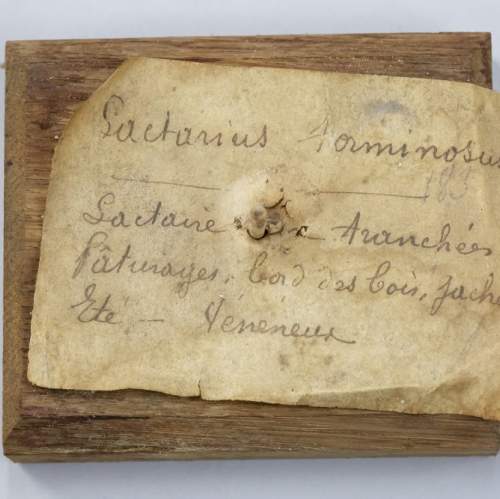 Lactarius torminosus
183
Lactaire aux tranchées
Pâturages, bord des bois, jach
Eté — Vénéneux